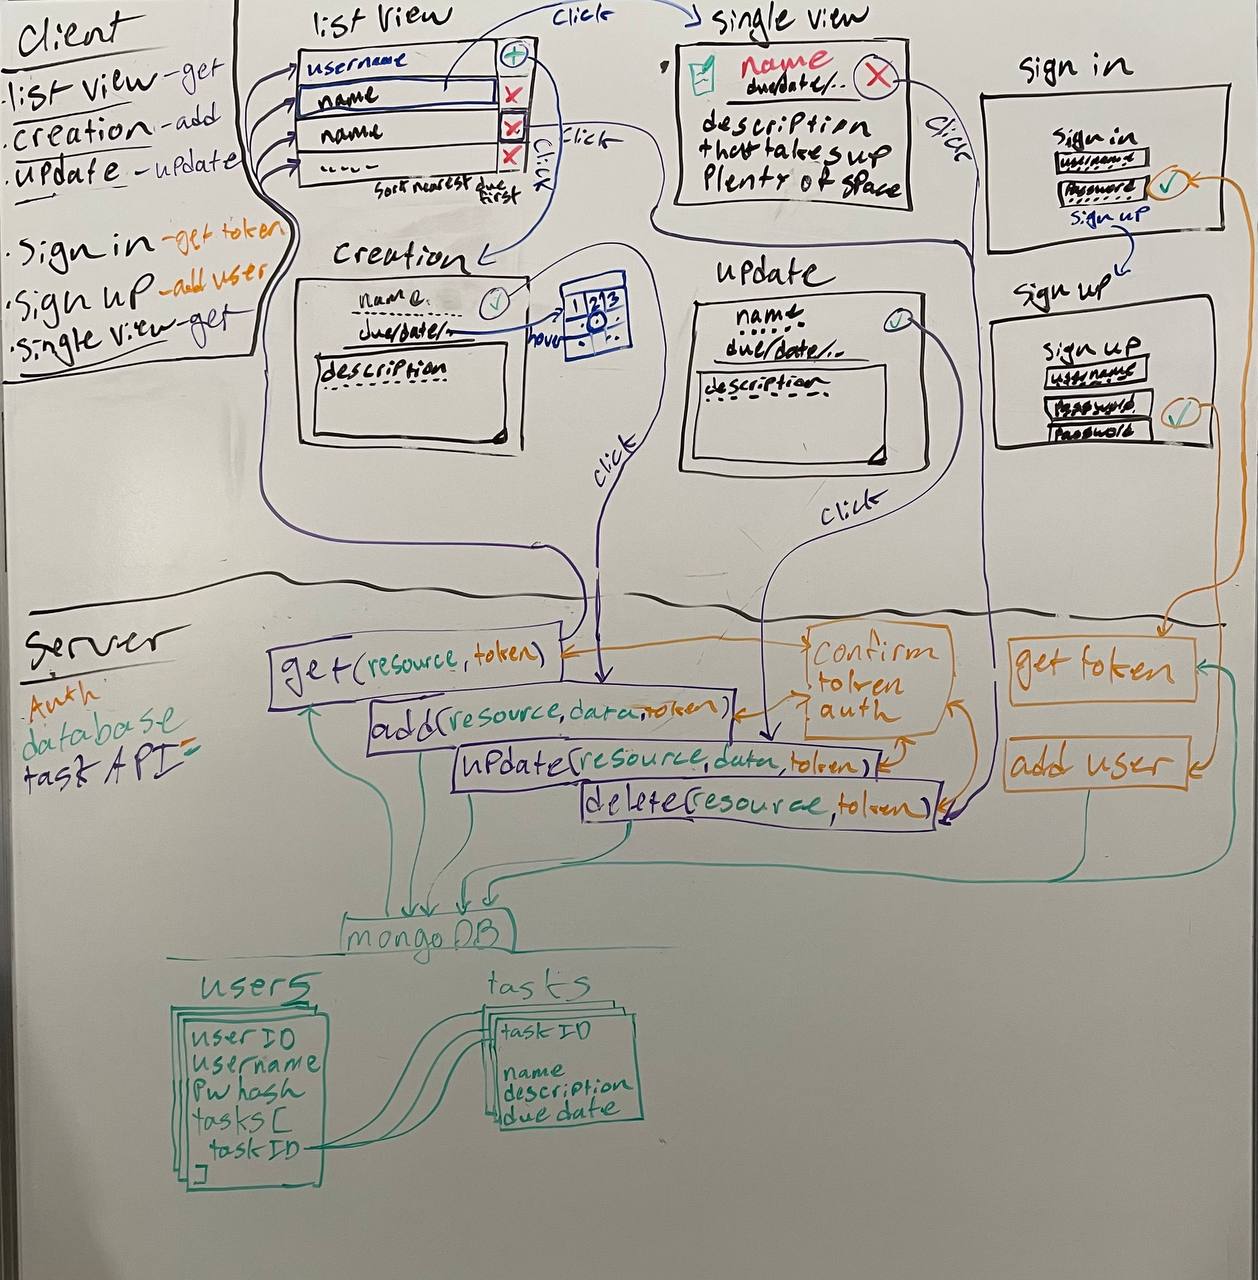 Client
·list view-get
·creation-add
·update-update
·sign in-get token
·sign up-add user
·single view-get
list view
username
name
name
.....
sort nearest due
first
Click
Click
Click
single view
name
due/date/..
description
that takes up
plenty of space
Click
sign in
sign in
username
Password
sign up
Creation
name
due/date/..
description
hover
1 2 3
Click
update
name
due/date/..
description
click
sign up
sign up
username
Password
Password
Server
Auth
database
task API
get(resource,token)
add(resource,data,token)
update(resource,data,token)
delete(resource,token)
confirm
token
auth
get token
add user
mongo DB
users
user ID
username
Pw hash
tasks [
task ID
]
tasks
task ID
name
description
due date